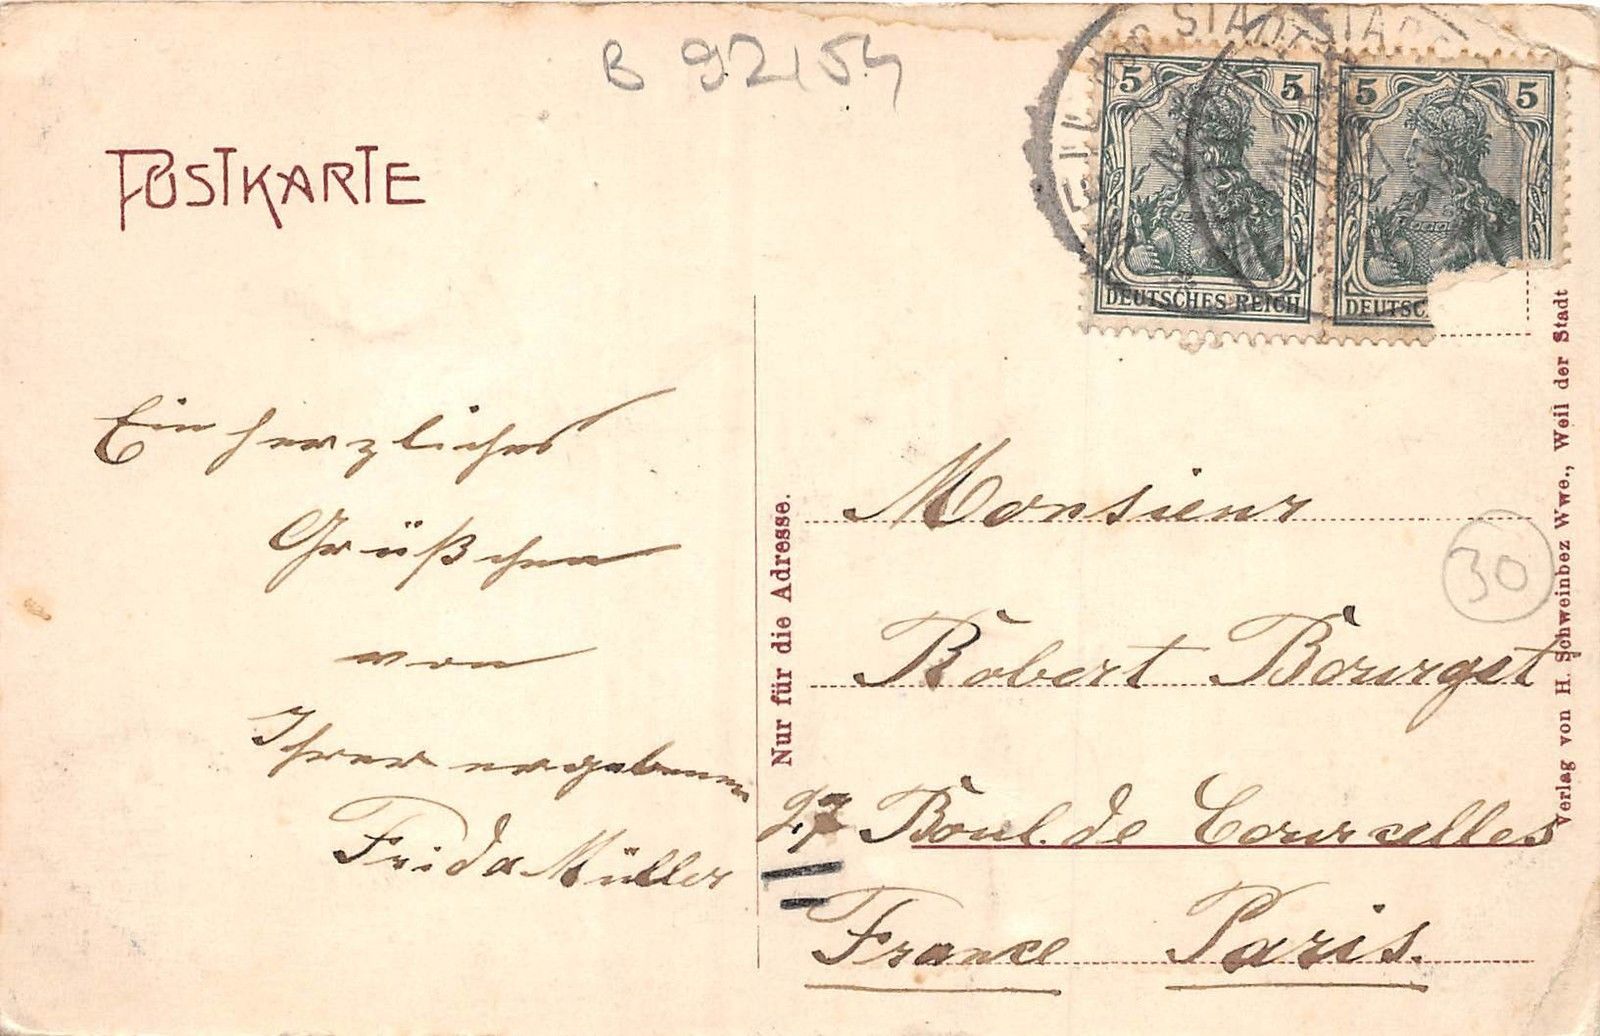 B 92154
POSTKARTE
5 5
DEUTSCHES REICH
5 5
DEUTSC
Ein herzliches
Grüßchen
von
Ihrer ergebenen
Frida Müller
Nur für die Adresse.
Monsieur
Robert Bourget
27 Boul. de Courcelles
France Paris.
30
Verlag von H. Schweinbez Wwe., Weil der Stadt